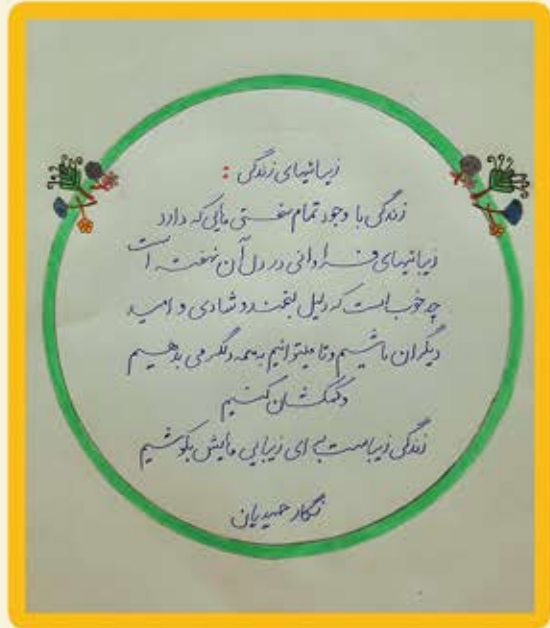 زیبائیهای زندگی :
زندگی با وجود تمام سختی هایی که دارد
زیبائیهای فراوانی در دل آن نهفته است
چه خوب است که دلیل لبخند و شادی و امید
دیگران باشیم و تا میتوانیم به همه دلگرمی بدهیم
و کمکشان کنیم
زندگی زیباست برای زیبایی هایش بکوشیم
نگار حمیدیان